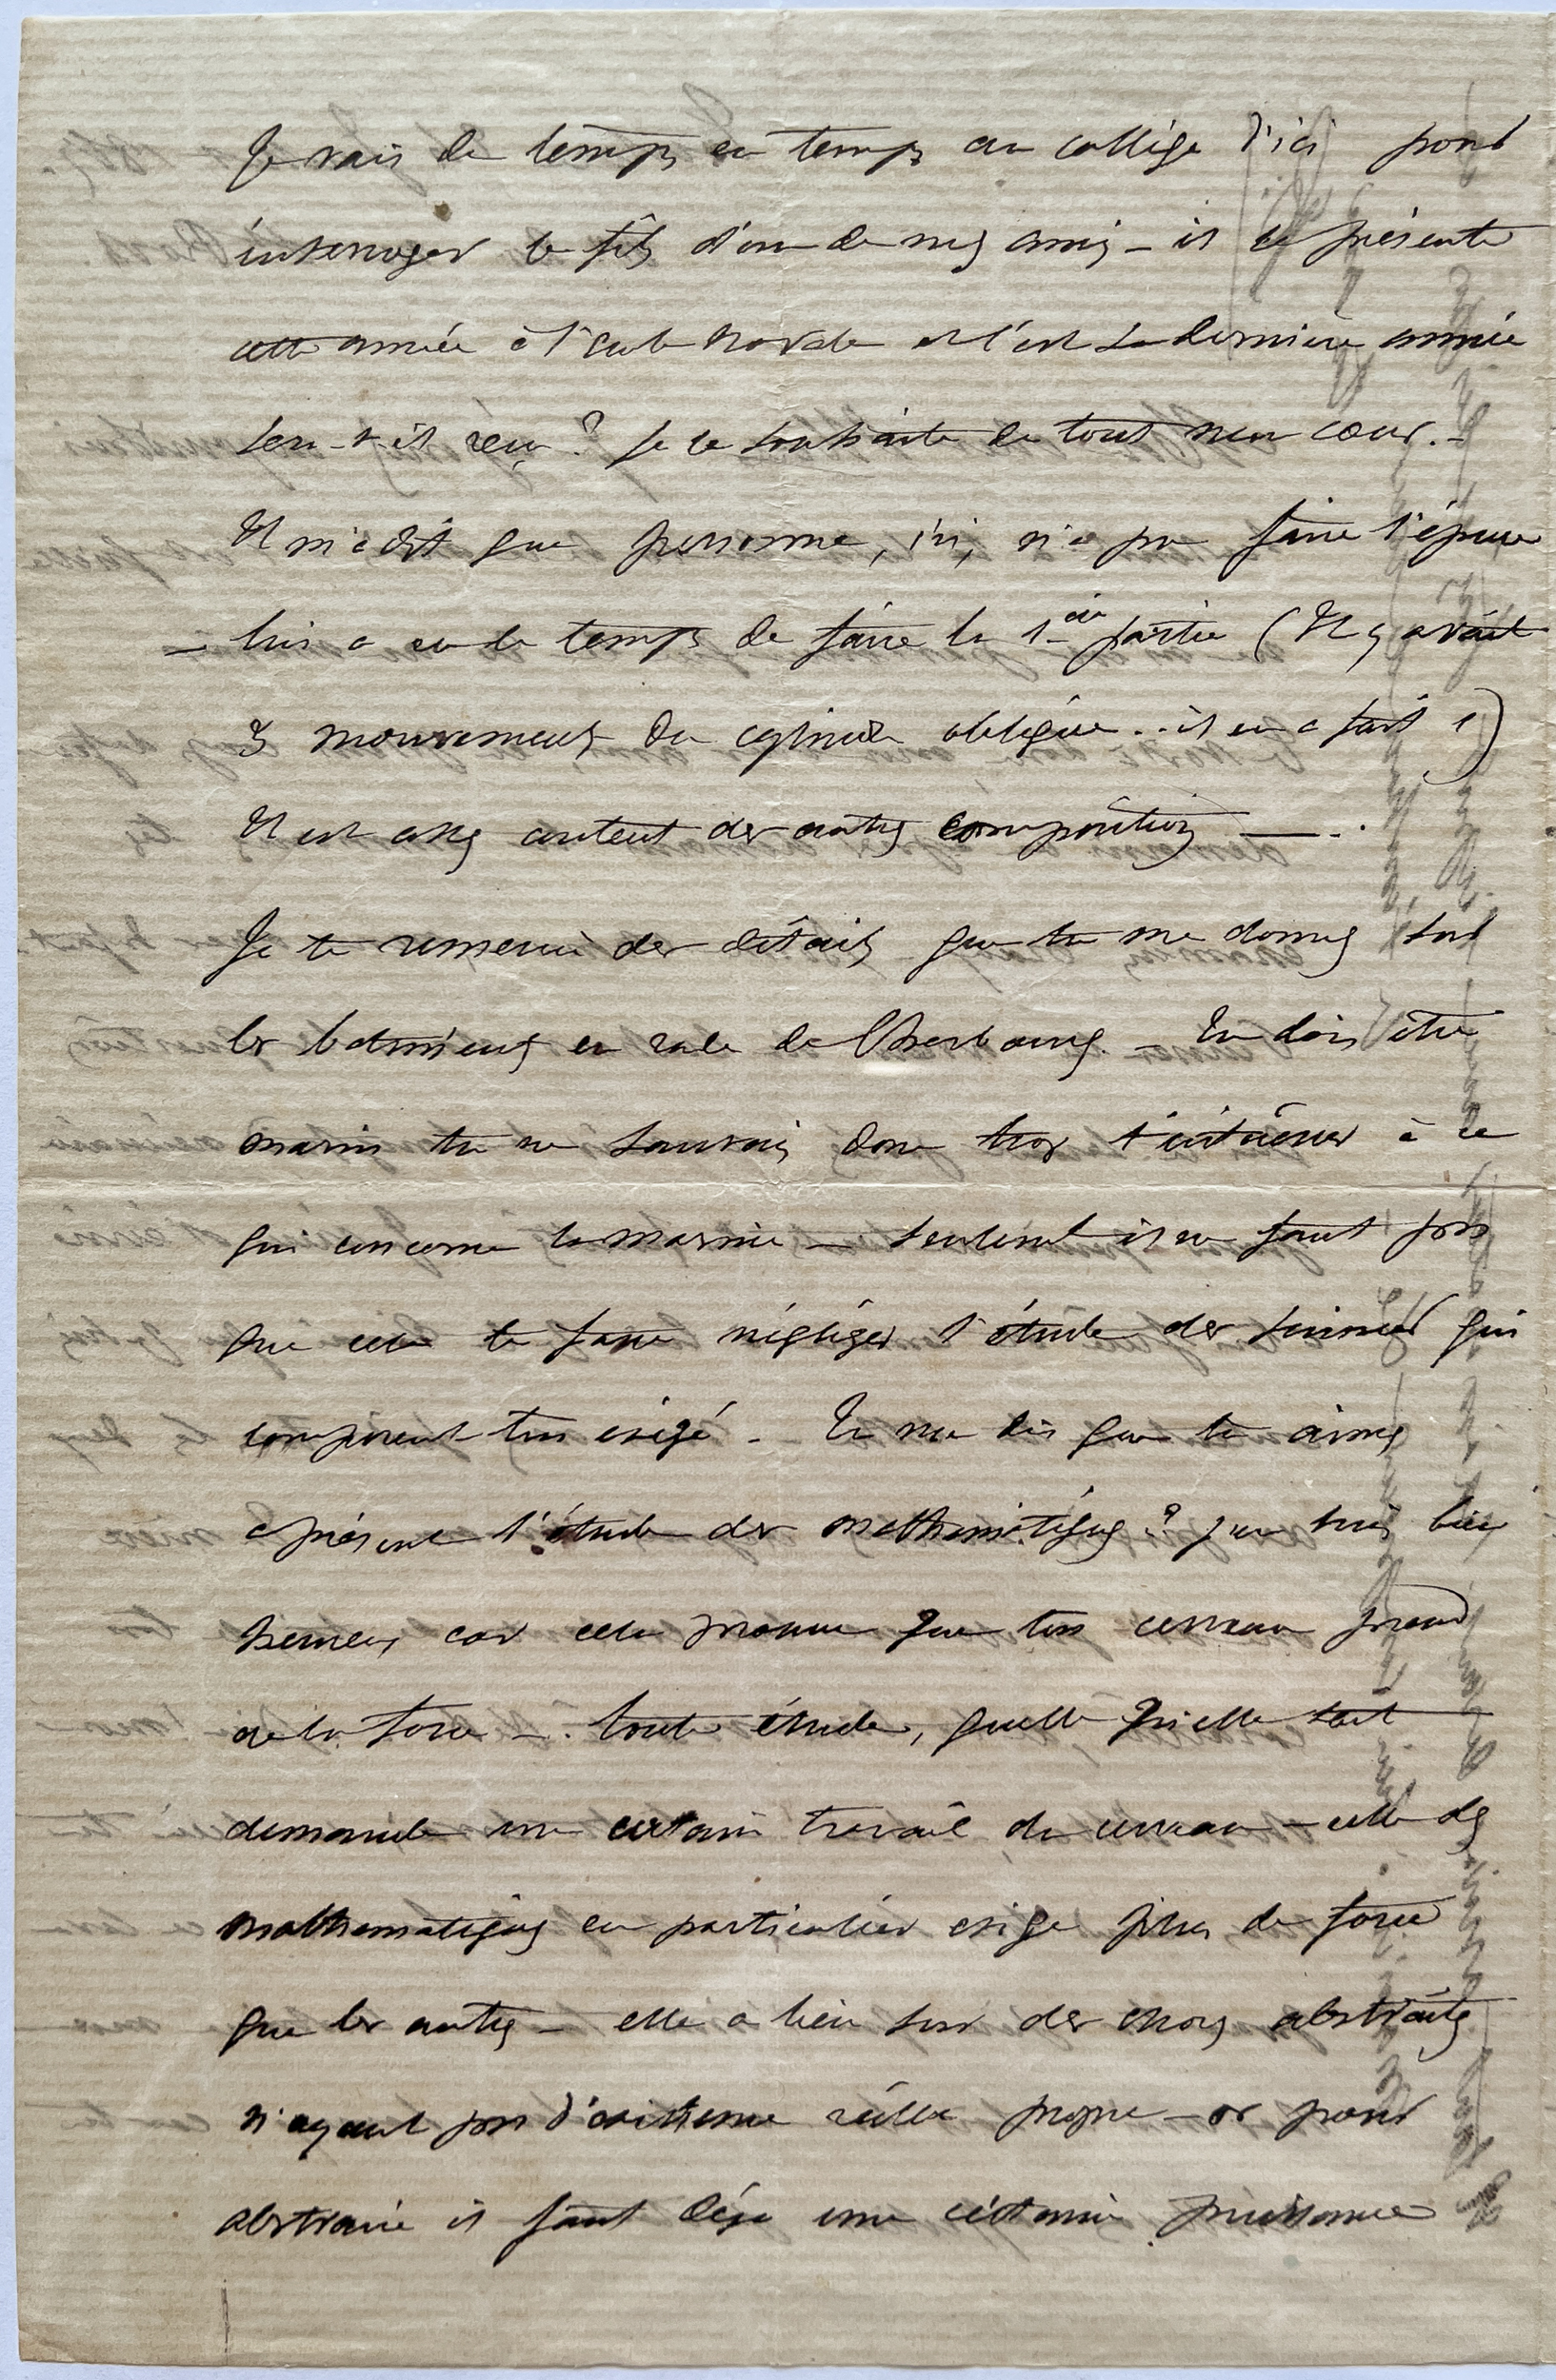 Je vais de temps en temps au collège d'ici pour
interroger le fils d'un de mes amis – il se présente
cette année à l'école navale et c'est sa dernière année
sera-t-il reçu ? Je le souhaite de tout mon cœur. –
Il m'a dit que personne, ici, n'a pu faire l'épure
– lui a eu le temps de faire la 1ère partie (Il y avait
3 mouvements du cylindre oblique .. il en a fait 1)
Il est assez content des autres compositions —.
Je te remercie des détails que tu me donnes sur
les bâtiments en rade de Cherbourg. – Tu dois être
marin tu ne saurais donc trop t'intéresser à ce
qui concerne la marine – seulement il ne faut pas
que cela te fasse négliger l'étude des sciences qui
composent ton exigé. Tu me dis que tu aimes
à présent l'étude des mathématiques ? j'en suis bien
heureux car cela prouve que ton cerveau prend
de la force –. toute étude, quelle qu'elle soit
demande un certain travail du cerveau – celle des
mathématiques en particulier exige plus de force
que les autres – elle a lieu sur des choses abstraites
n'ayant pas d'existence réelle propre – or pour
abstraire il faut déjà une certaine puissance